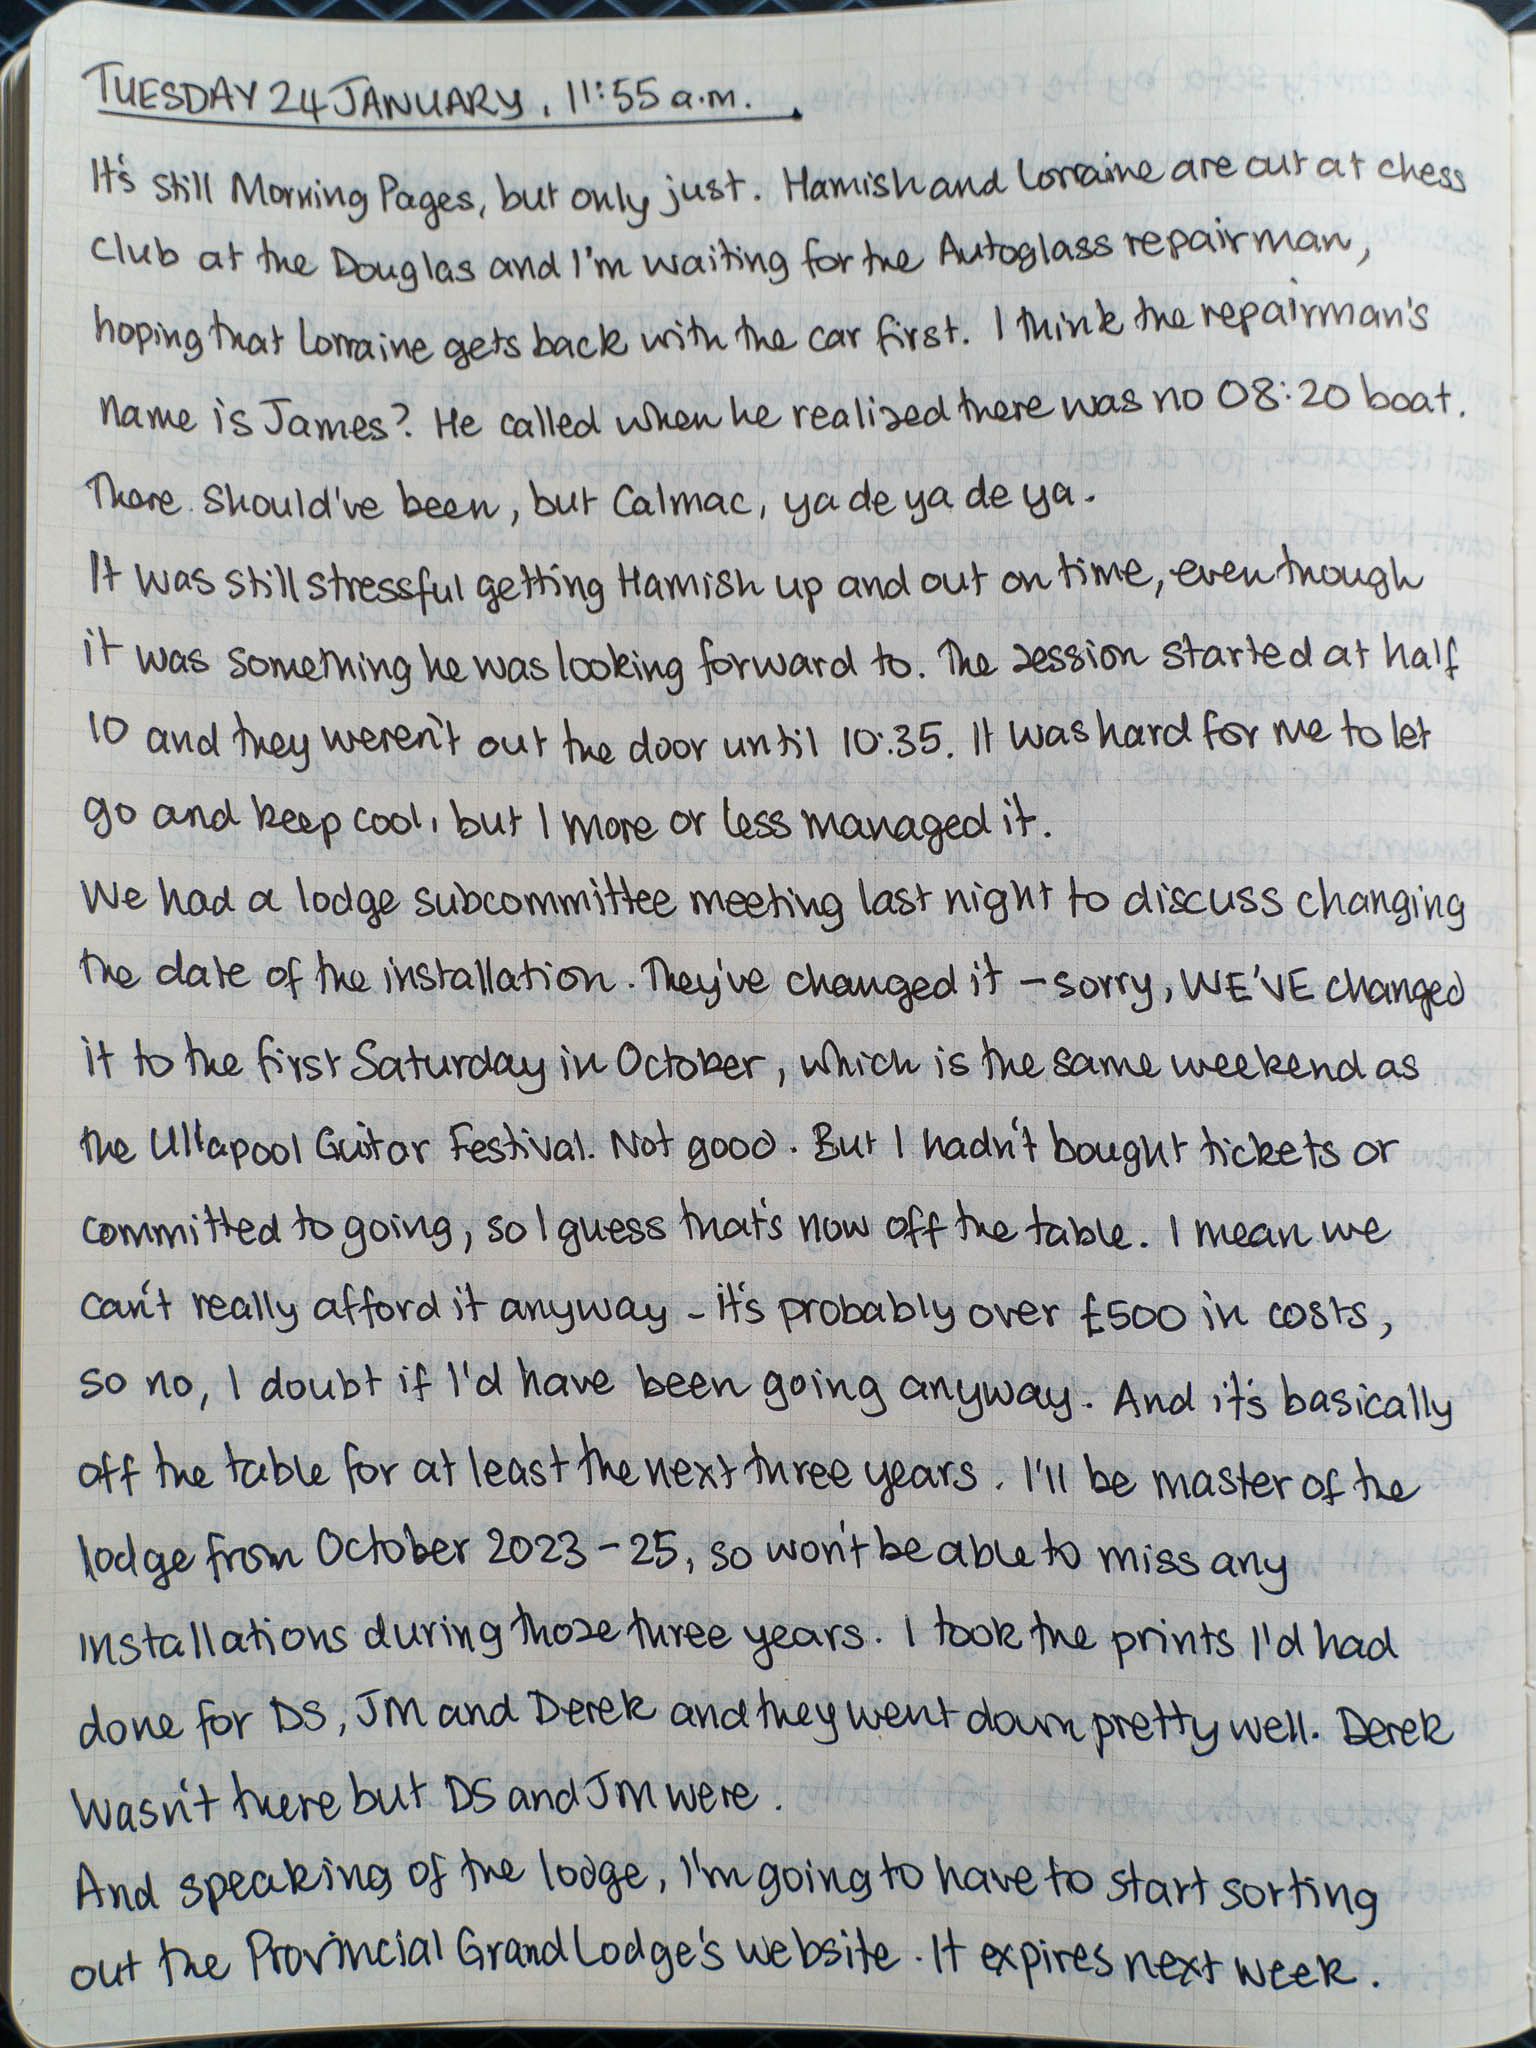 TUESDAY 24 JANUARY, 11:55 a.m.
It's still Morning Pages, but only just. Hamish and Lorraine are out at chess
club at the Douglas and I'm waiting for the Autoglass repairman,
hoping that Lorraine gets back with the car first. I think the repairman's
name is James? He called when he realised there was no 08:20 boat.
There should've been, but Calmac, ya de ya de ya.
It was still stressful getting Hamish up and out on time, even though
it was something he was looking forward to. The session started at half
10 and they weren't out the door until 10:35. It was hard for me to let
go and keep cool, but I more or less managed it.
We had a lodge subcommittee meeting last night to discuss changing
the date of the installation. They've changed it – sorry, WE'VE changed
it to the first Saturday in October, which is the same weekend as
the Ullapool Guitar Festival. Not good. But I hadn't bought tickets or
committed to going, so I guess that's now off the table. I mean we
can't really afford it anyway – it's probably over £500 in costs,
so no, I doubt if I'd have been going anyway. And it's basically
off the table for at least the next three years. I'll be master of the
lodge from October 2023–25, so won't be able to miss any
installations during those three years. I took the prints I'd had
done for DS, JM and Derek and they went down pretty well. Derek
wasn't there but DS and JM were.
And speaking of the lodge, I'm going to have to start sorting
out the Provincial Grand Lodge's website. It expires next week.